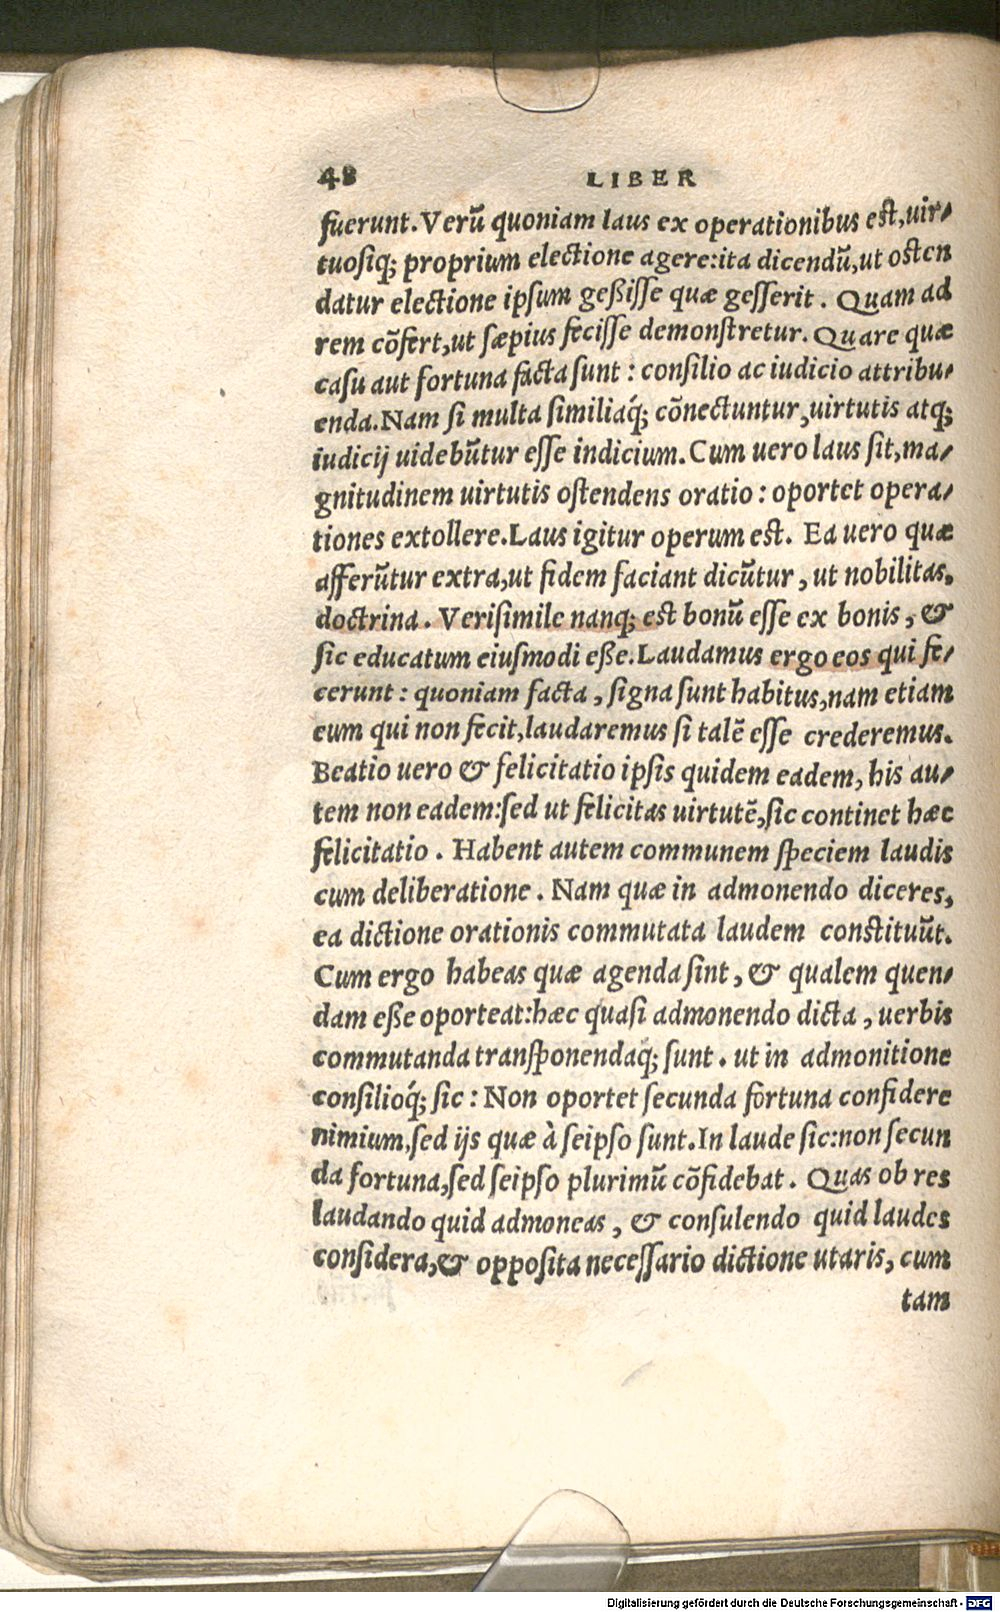 48 LIBER
fuerunt. Verũ quoniam laus ex operationibus est, uir-
tuosiq; proprium electione agere: ita dicendũ, ut osten
datur electione ipsum geßisse quæ gesserit. Quam ad
rem cõfert, ut sæpius fecisse demonstretur. Quare quæ
casu aut fortuna facta sunt: consilio ac iudicio attribu-
enda. Nam si multa similiaq́; cõnectuntur, uirtutis atq;
iudicij uidebũtur esse indicium. Cum uero laus sit, ma-
gnitudinem uirtutis ostendens oratio: oportet opera-
tiones extollere. Laus igitur operum est. Ea uero quæ
afferũtur extra, ut fidem faciant dicũtur, ut nobilitas,
doctrina. Verisimile nanq; est bonũ esse ex bonis, &
sic educatum eiusmodi eße. Laudamus ergo eos qui fe-
cerunt: quoniam facta, signa sunt habitus, nam etiam
eum qui non fecit, laudaremus si talẽ esse crederemus.
Beatio uero & felicitatio ipsis quidem eadem, his au-
tem non eadem: sed ut felicitas uirtutẽ, sic continet hæc
felicitatio. Habent autem communem speciem laudis
cum deliberatione. Nam quæ in admonendo diceres,
ea dictione orationis commutata laudem constituũt.
Cum ergo habeas quæ agenda sint, & qualem quen-
dam eße oporteat: hæc quasi admonendo dicta, uerbis
commutanda transponendaq́; sunt. ut in admonitione
consilioq́; sic: Non oportet secunda fortuna confidere
nimium, sed ijs quæ à seipso sunt. In laude sic: non secun
da fortuna, sed seipso plurimũ cõfidebat. Quas ob res
laudando quid admoneas, & consulendo quid laudes
considera, & opposita necessario dictione utaris, cum
tam
Digitalisierung gefördert durch die Deutsche Forschungsgemeinschaft - DFG